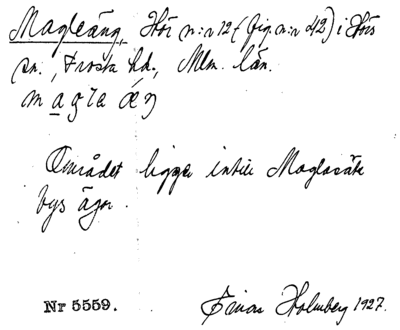 Magleäng, Hör n:r 12 (Fig. n:r 42) i Hörs
sn., Frosta hd., Mlm. län.
magle áeŋ
Området ligger intill Maglasäte
bys ägor.
Nr 5559. Einar Holmberg 1927.